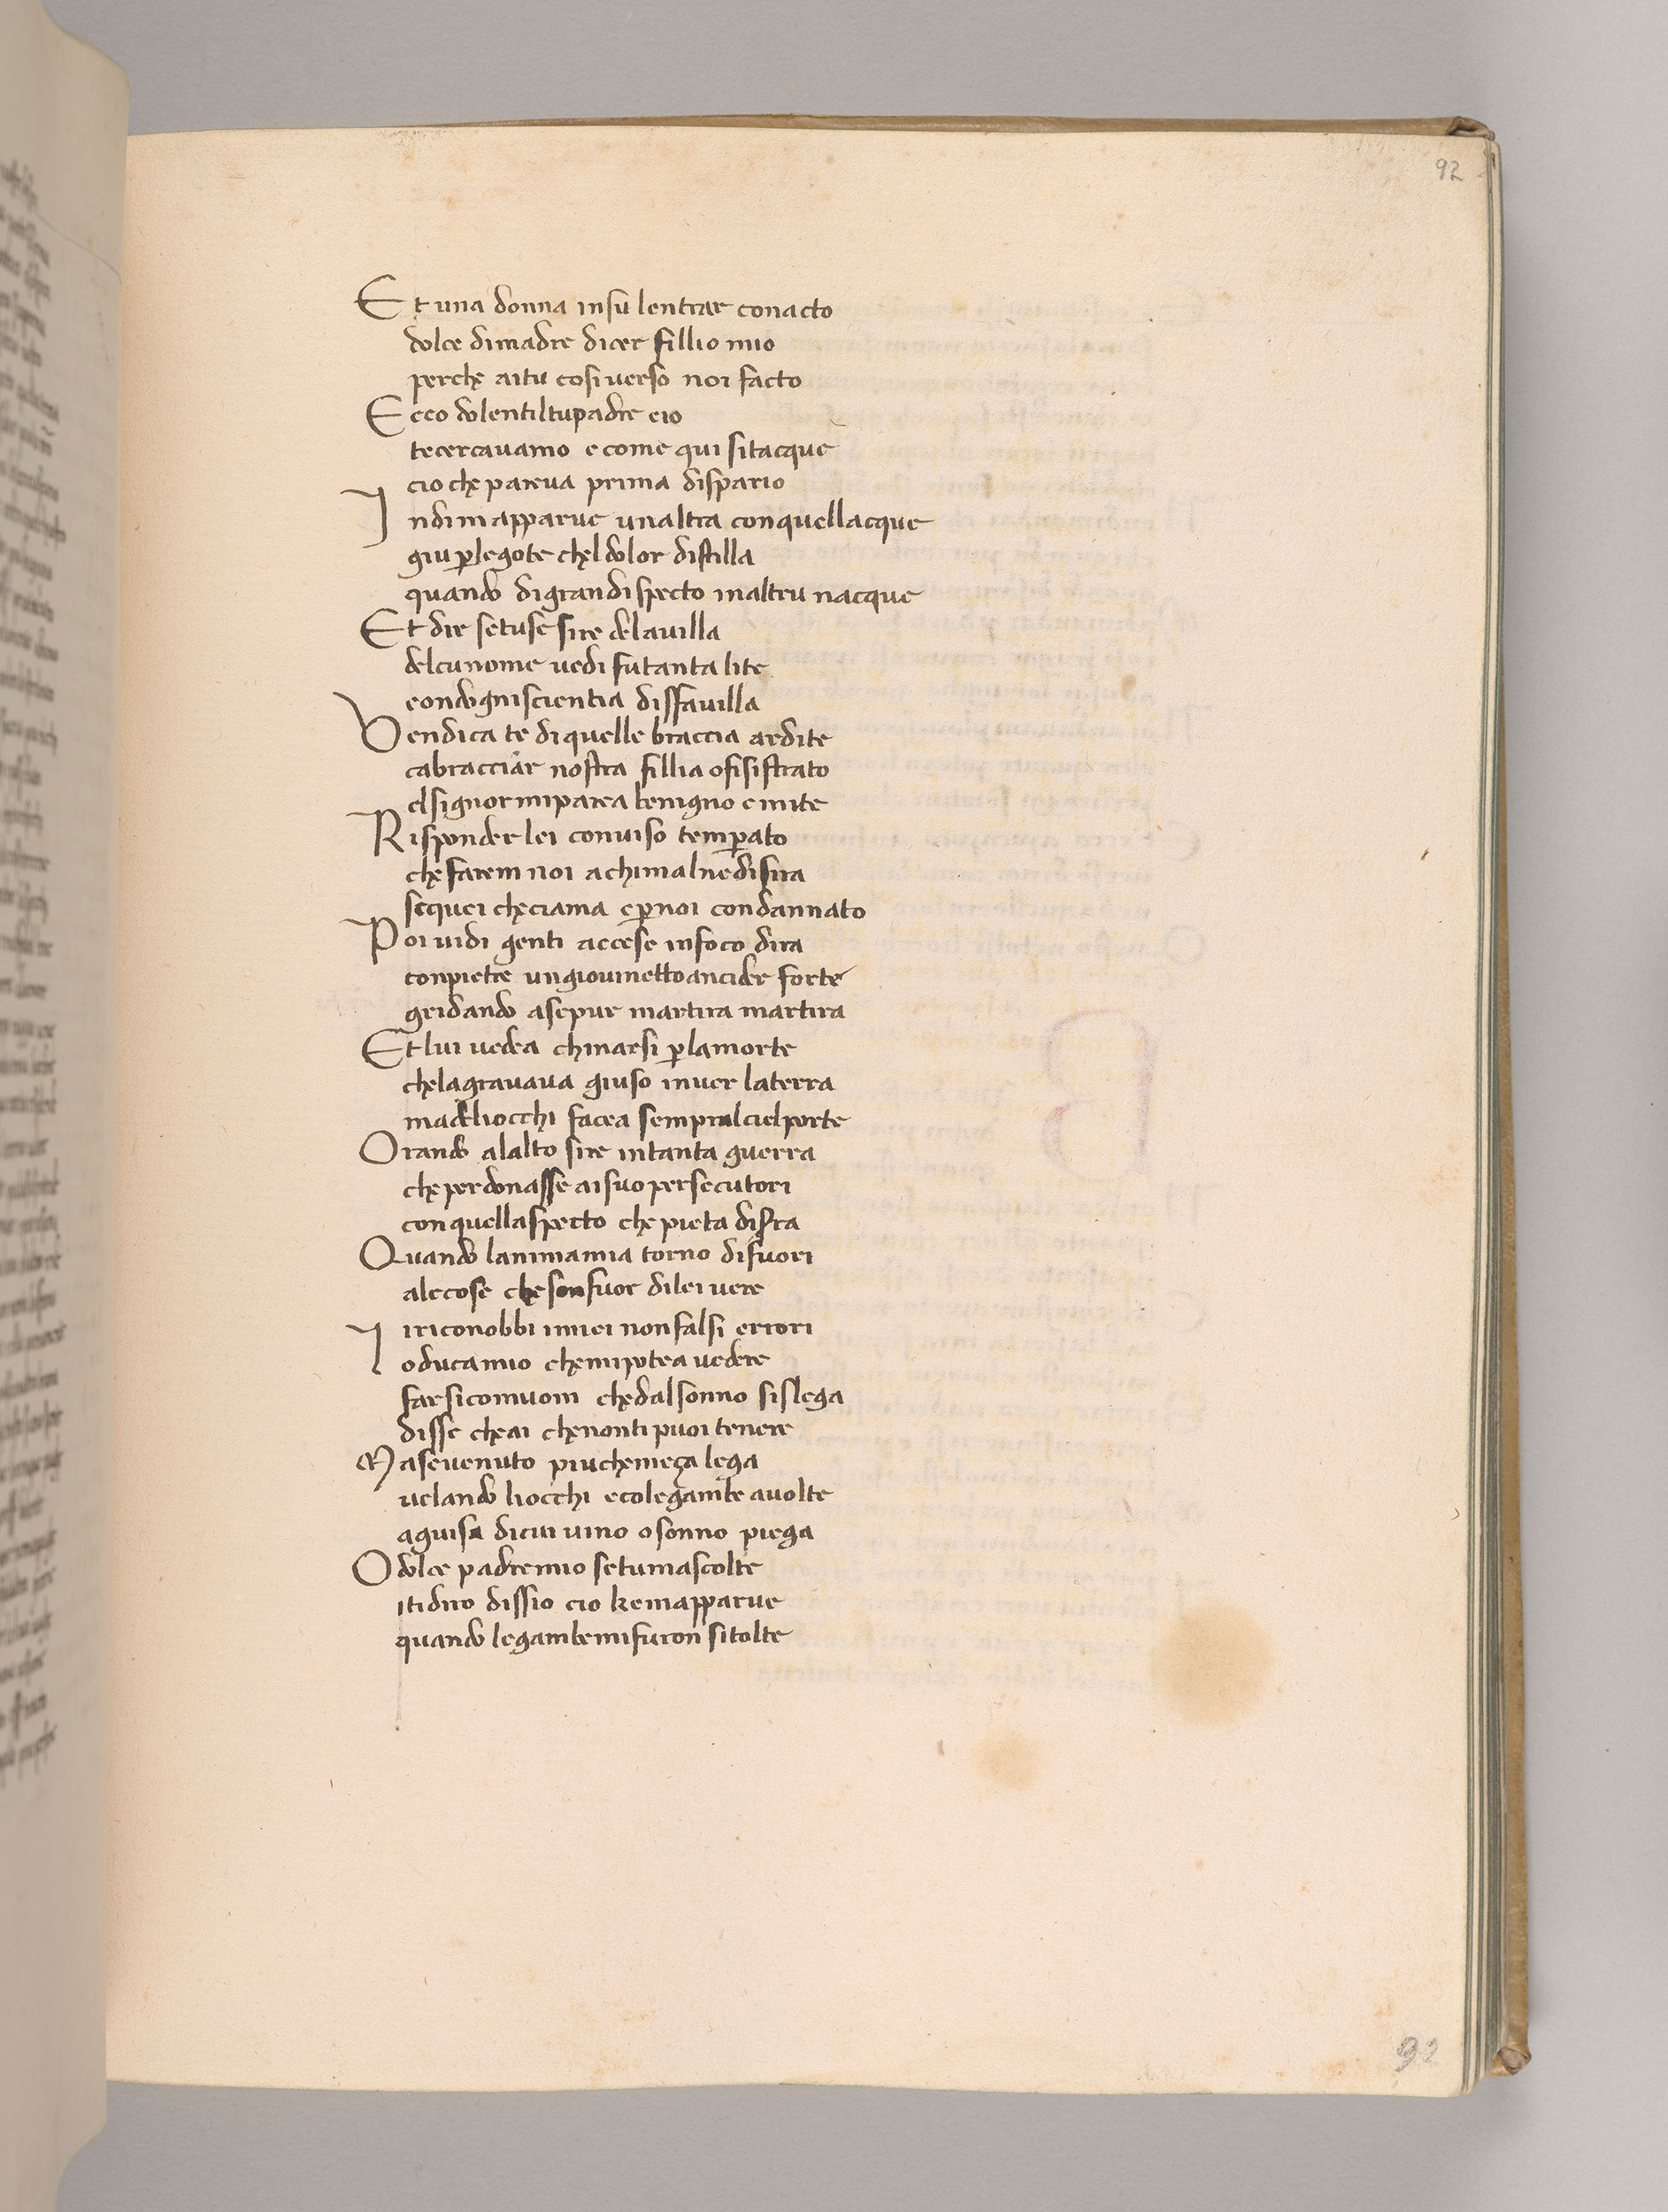 92
Et una donna insu lentrar conacto
dolce dimadre dicer fillio mio
perche aitu cosi verso noi facto
Ecco dolentiltupadre eio
tecercavamo e come qui sitacque
cio che pareva prima dispario
Indi mapparve unaltra conquellacque
giu p legote chel dolor distilla
quando digrandispecto inaltru nacque
Et dir setuse sire delavilla
delcunome vedi futanta lite
eondogniscientia disfavilla
Vendica te diquelle braccia ardite
cabracciar nostra fillia ofisistrato
elsignor miparea benigno e mite
Risponder lei conviso temperato
che farem noi achimalnedisira
sequei checiama e p noi condannato
Poi vidi genti accese infoco dira
conpietre ungiovinetto ancider forte
gridando asepur martira martira
Et lui vedea chinarsi p lamorte
chelagravava giuso inver laterra
madeliocchi facea sempralcielporte
Orando alalto sire intanta guerra
che perdonasse aisuo persecutori
conquellaspecto che pieta disra
Quando lanimamia torno difuori
alecose che sonfuor dilei vere
iriconobbi imiei nonfalsi errori
Ioducamio chemipotea vedere
farsicomuom chedalsonno sislega
disse cheai chenonti puoi tenere
Masevenuto piuchemeça lega
velando liocchi ecolegambe avolte
aguisa dicui vino osonno piega
Odolce padremio setumascolte
itidiro dissio cio kemapparve
quando legambemifuron sitolte
92